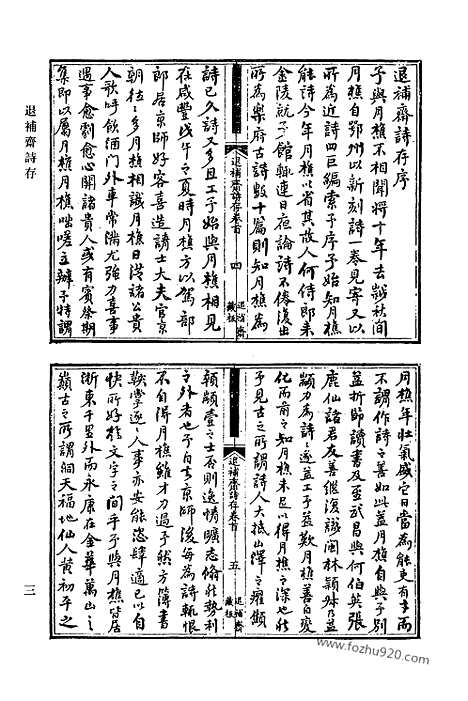 退補齋詩存序
予與月樵不相聞將十年去秋間
月樵自鄂州以新刻詩一卷見寄又以
所為近詩四巨編索予序予始知月樵
能詩今年月樵以省其故人何侍郎來
金陵就予館輒連日夜論詩不倦復出
所為樂府古詩數十篇則知月樵為
詩已久詩又多且工予始與月樵相見
在咸豐戊午之夏時月樵方以駕部
郎居京師好客喜造請士大夫官京
朝往往多月樵相識月樵日從諸公貴
人歌呼飲酒門外車常滿尤強力喜事
遇事愈劇愈心開諸貴人或有賓祭期
集即以屬月樵月樵咄嗟立辦予特謂
退補齋詩存卷首
四
退補齋
藏板
月樵年壯氣盛它日當為能吏有才而
不謂作詩之善如此蓋月樵自與予別
益折節讀書及至武昌與何伯英張
鹿仙諸君友善繼復識閩林穎叔乃益
顓力為詩遂益工予茲歎月樵善自變
化而前之知月樵未足以得月樵之深也然
予見古之所謂詩人大抵山澤之癯顦
顇顓壹之士否則逸情曠志翛然勢利
之外者也予自去京師後每為詩輒恨
不自得月樵雖才力過予然方簿書
鞅掌逐逐人事亦安能恣肆適己以自
快所好於文字之間乎予與月樵皆居
浙東千里外而永康在金華萬山之
巔古之所謂洞天福地仙人黃初平之
退補齋詩存卷首
五
退補齋
藏板
退補齋詩存
三
www.fozhu920.com